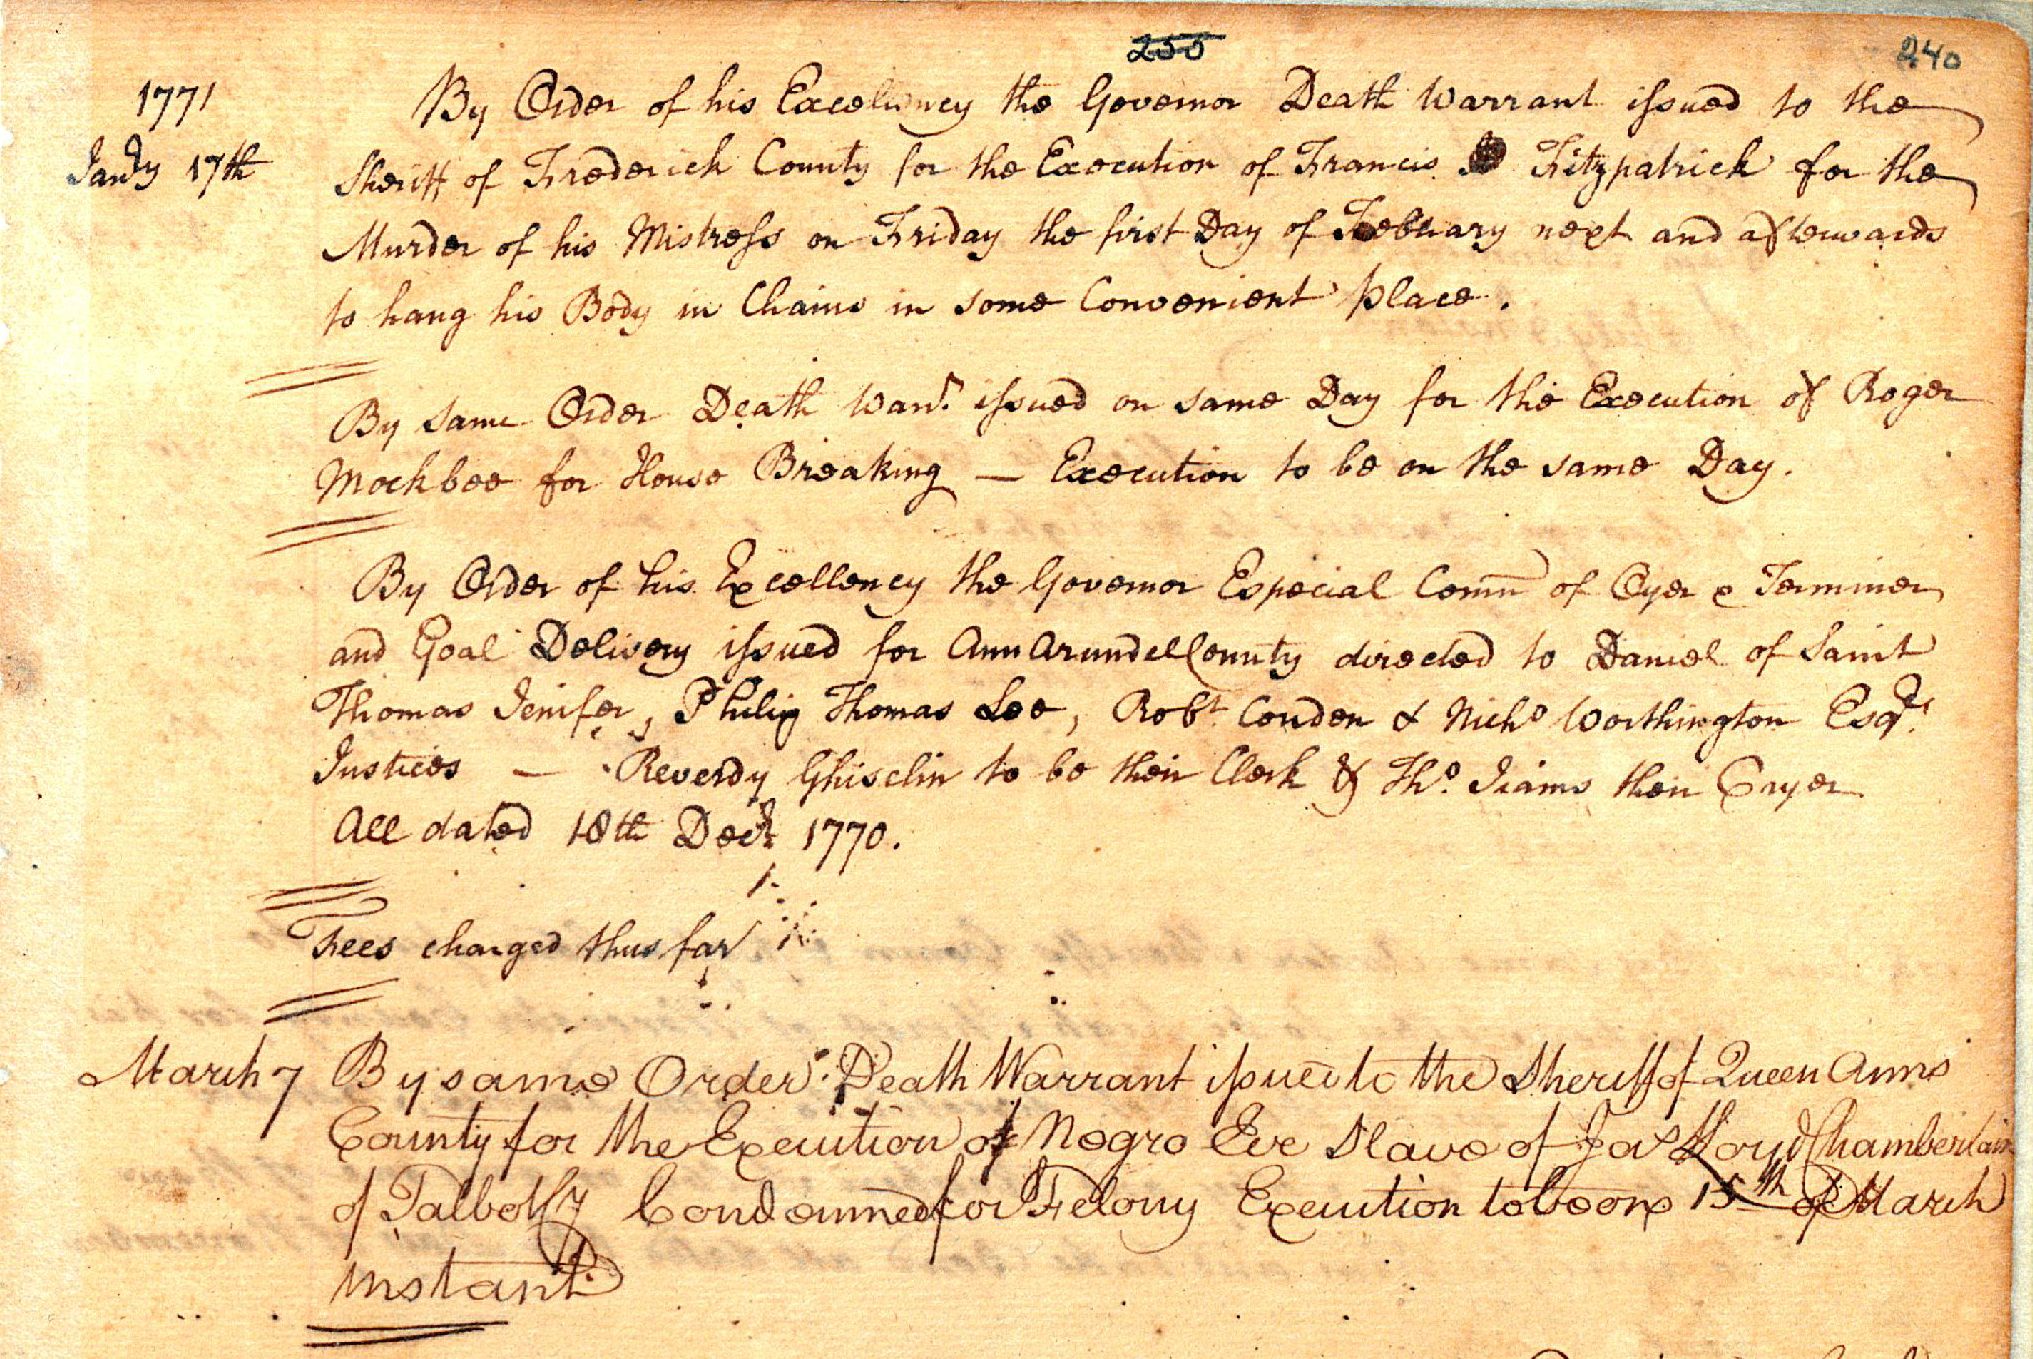 255 240
1771 By Order of his Excellency the Governor Death Warrant issued to the
Jan'y 17th Sheriff of Frederick County for the Execution of Francis Fitzpatrick for the
Murder of his Mistress on Friday the first Day of February next and afterwards
to hang his Body in Chains in some Convenient place.
By same Order Death Warr.t issued on same Day for the Execution of Roger
Mockbee for House Breaking — Execution to be on the same Day.
By Order of his Excellency the Governor Especial Comn of Oyer & Terminer
and Goal Delivery issued for Ann Arundel County directed to Daniel of Saint
Thomas Jenifer, Philip Thomas Lee, Robt Couden & Nicho Worthington Esqrs
Justices — Reverdy Ghiselin to be their Clerk & Tho. Iiams their Cryer
All dated 18th Decr 1770.
Fees charged thus far
March 7 By same Order Death Warrant issued to the Sheriff of Queen Anns
County for the Execution of Negro Eve Slave of Jas Lloyd Chamberlain
of Talbot Cty Condemned for Felony Execution to be on 15th of March
instant